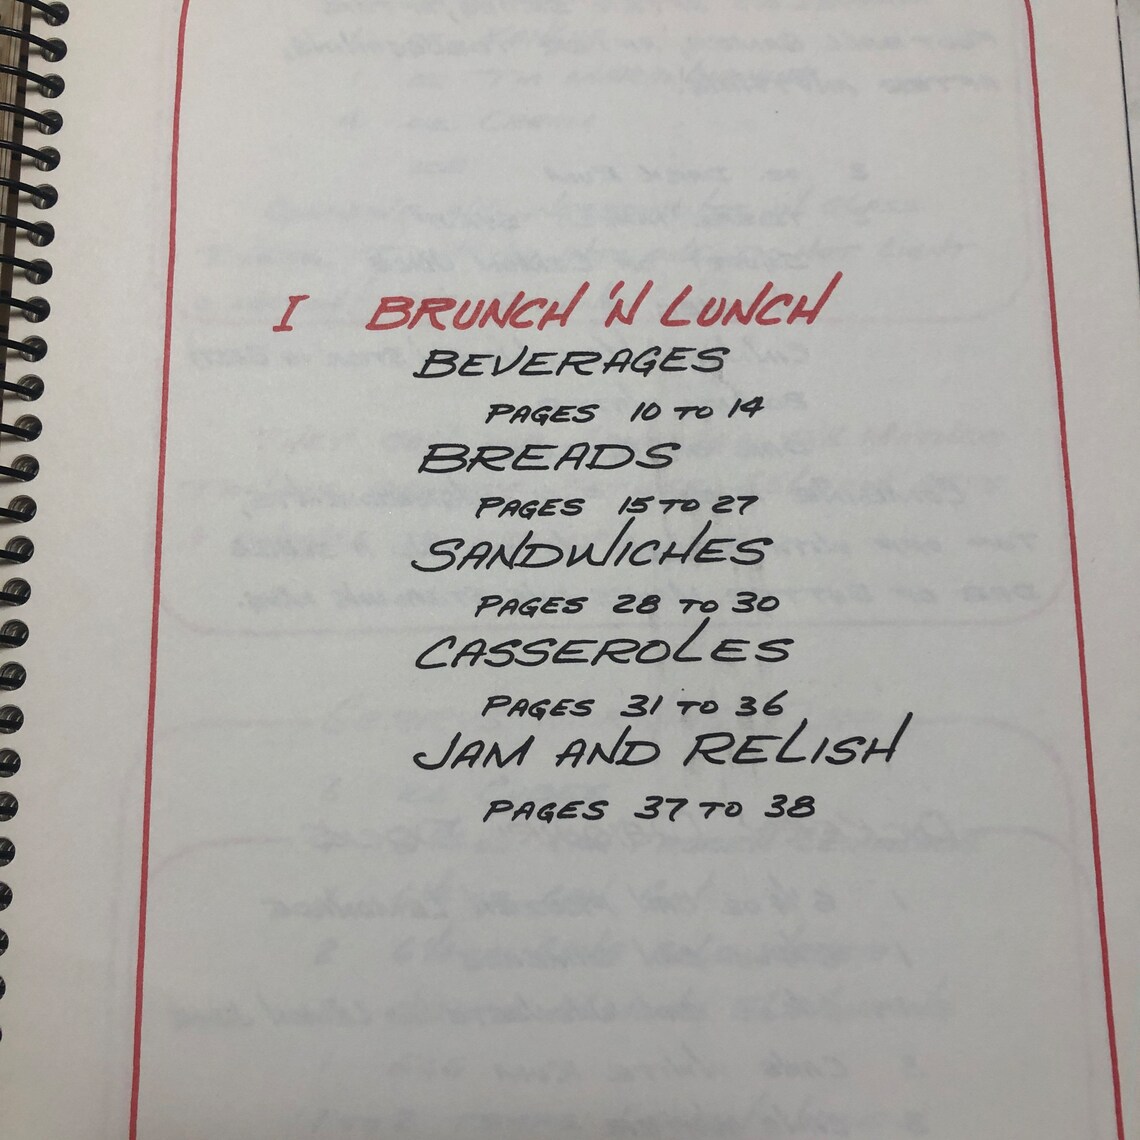 I BRUNCH 'N LUNCH
BEVERAGES
PAGES 10 TO 14
BREADS
PAGES 15 TO 27
SANDWICHES
PAGES 28 TO 30
CASSEROLES
PAGES 31 TO 36
JAM AND RELISH
PAGES 37 TO 38